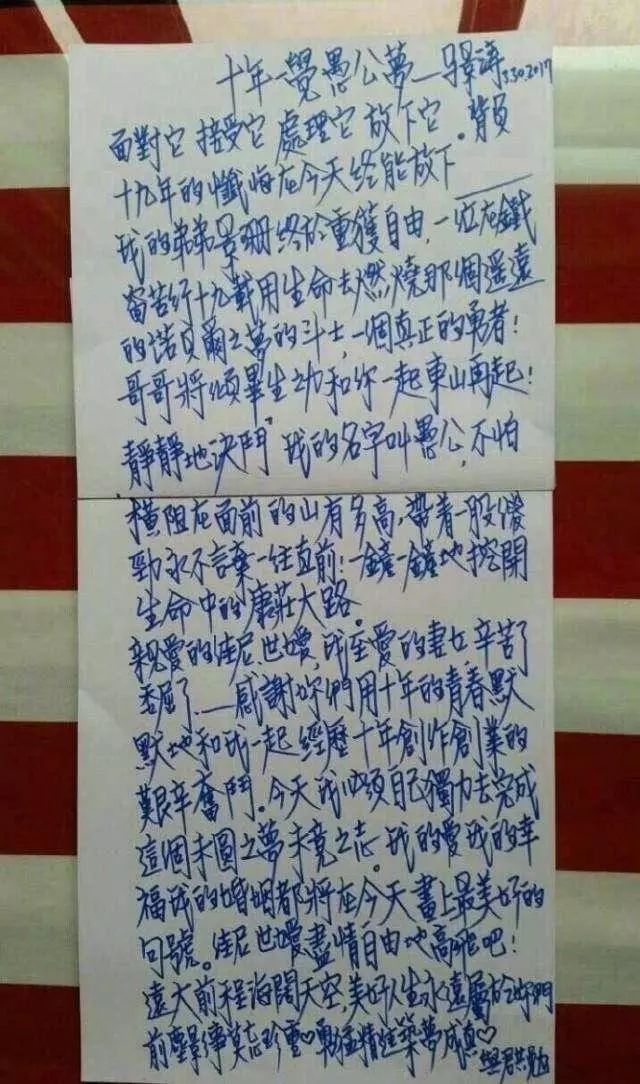 十年一覺愚公夢—景濤3302017
面對它 接受它 處理它 放下它.背負
十九年的懺悔在今天终能放下
我的弟弟景珊終於重獲自由,一位在鐵
窗苦行十九載用生命去燃燒那個遥遠
的諾貝爾之夢的斗士,一個真正的勇者!
哥哥將傾畢生功和你一起東山再起!
靜靜地決鬥"我的名字叫愚公,不怕
橫阻在面前的山有多高,帶着一股傻
勁永不言棄一往直前!一鏟一鏟地挖開
生命中的康莊大路。
親愛的佳尼,世嬡,我至愛的妻女,辛苦了
委屈了.—感謝妳們用十年的青春默
默地和我一起經歷十年創作創業的
艱辛奮鬥.今天我必須自己獨力去完成
這個未圓之夢未竟之志.我的愛我的幸
福我的婚姻都將在今天畫上最美好的
句號。佳尼世嬡盡情自由地高飛吧!
遠大前程海闊天空,美好人生永遠屬於妳們
前塵景濤莫忘珍重♡勇猛精進築夢成真♡與君共勉